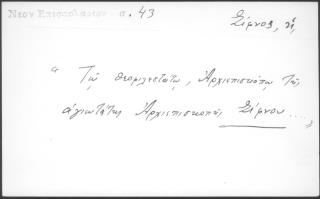 Νέον Επισκοπικόν σ. 43
Σίφνος, ἡ,
“ Τῷ θεοφιλεστάτῳ, Ἀρχιεπισκόπῳ τῆς
ἁγιωτάτης Ἀρχιεπισκοπῆς Σίφνου .... „